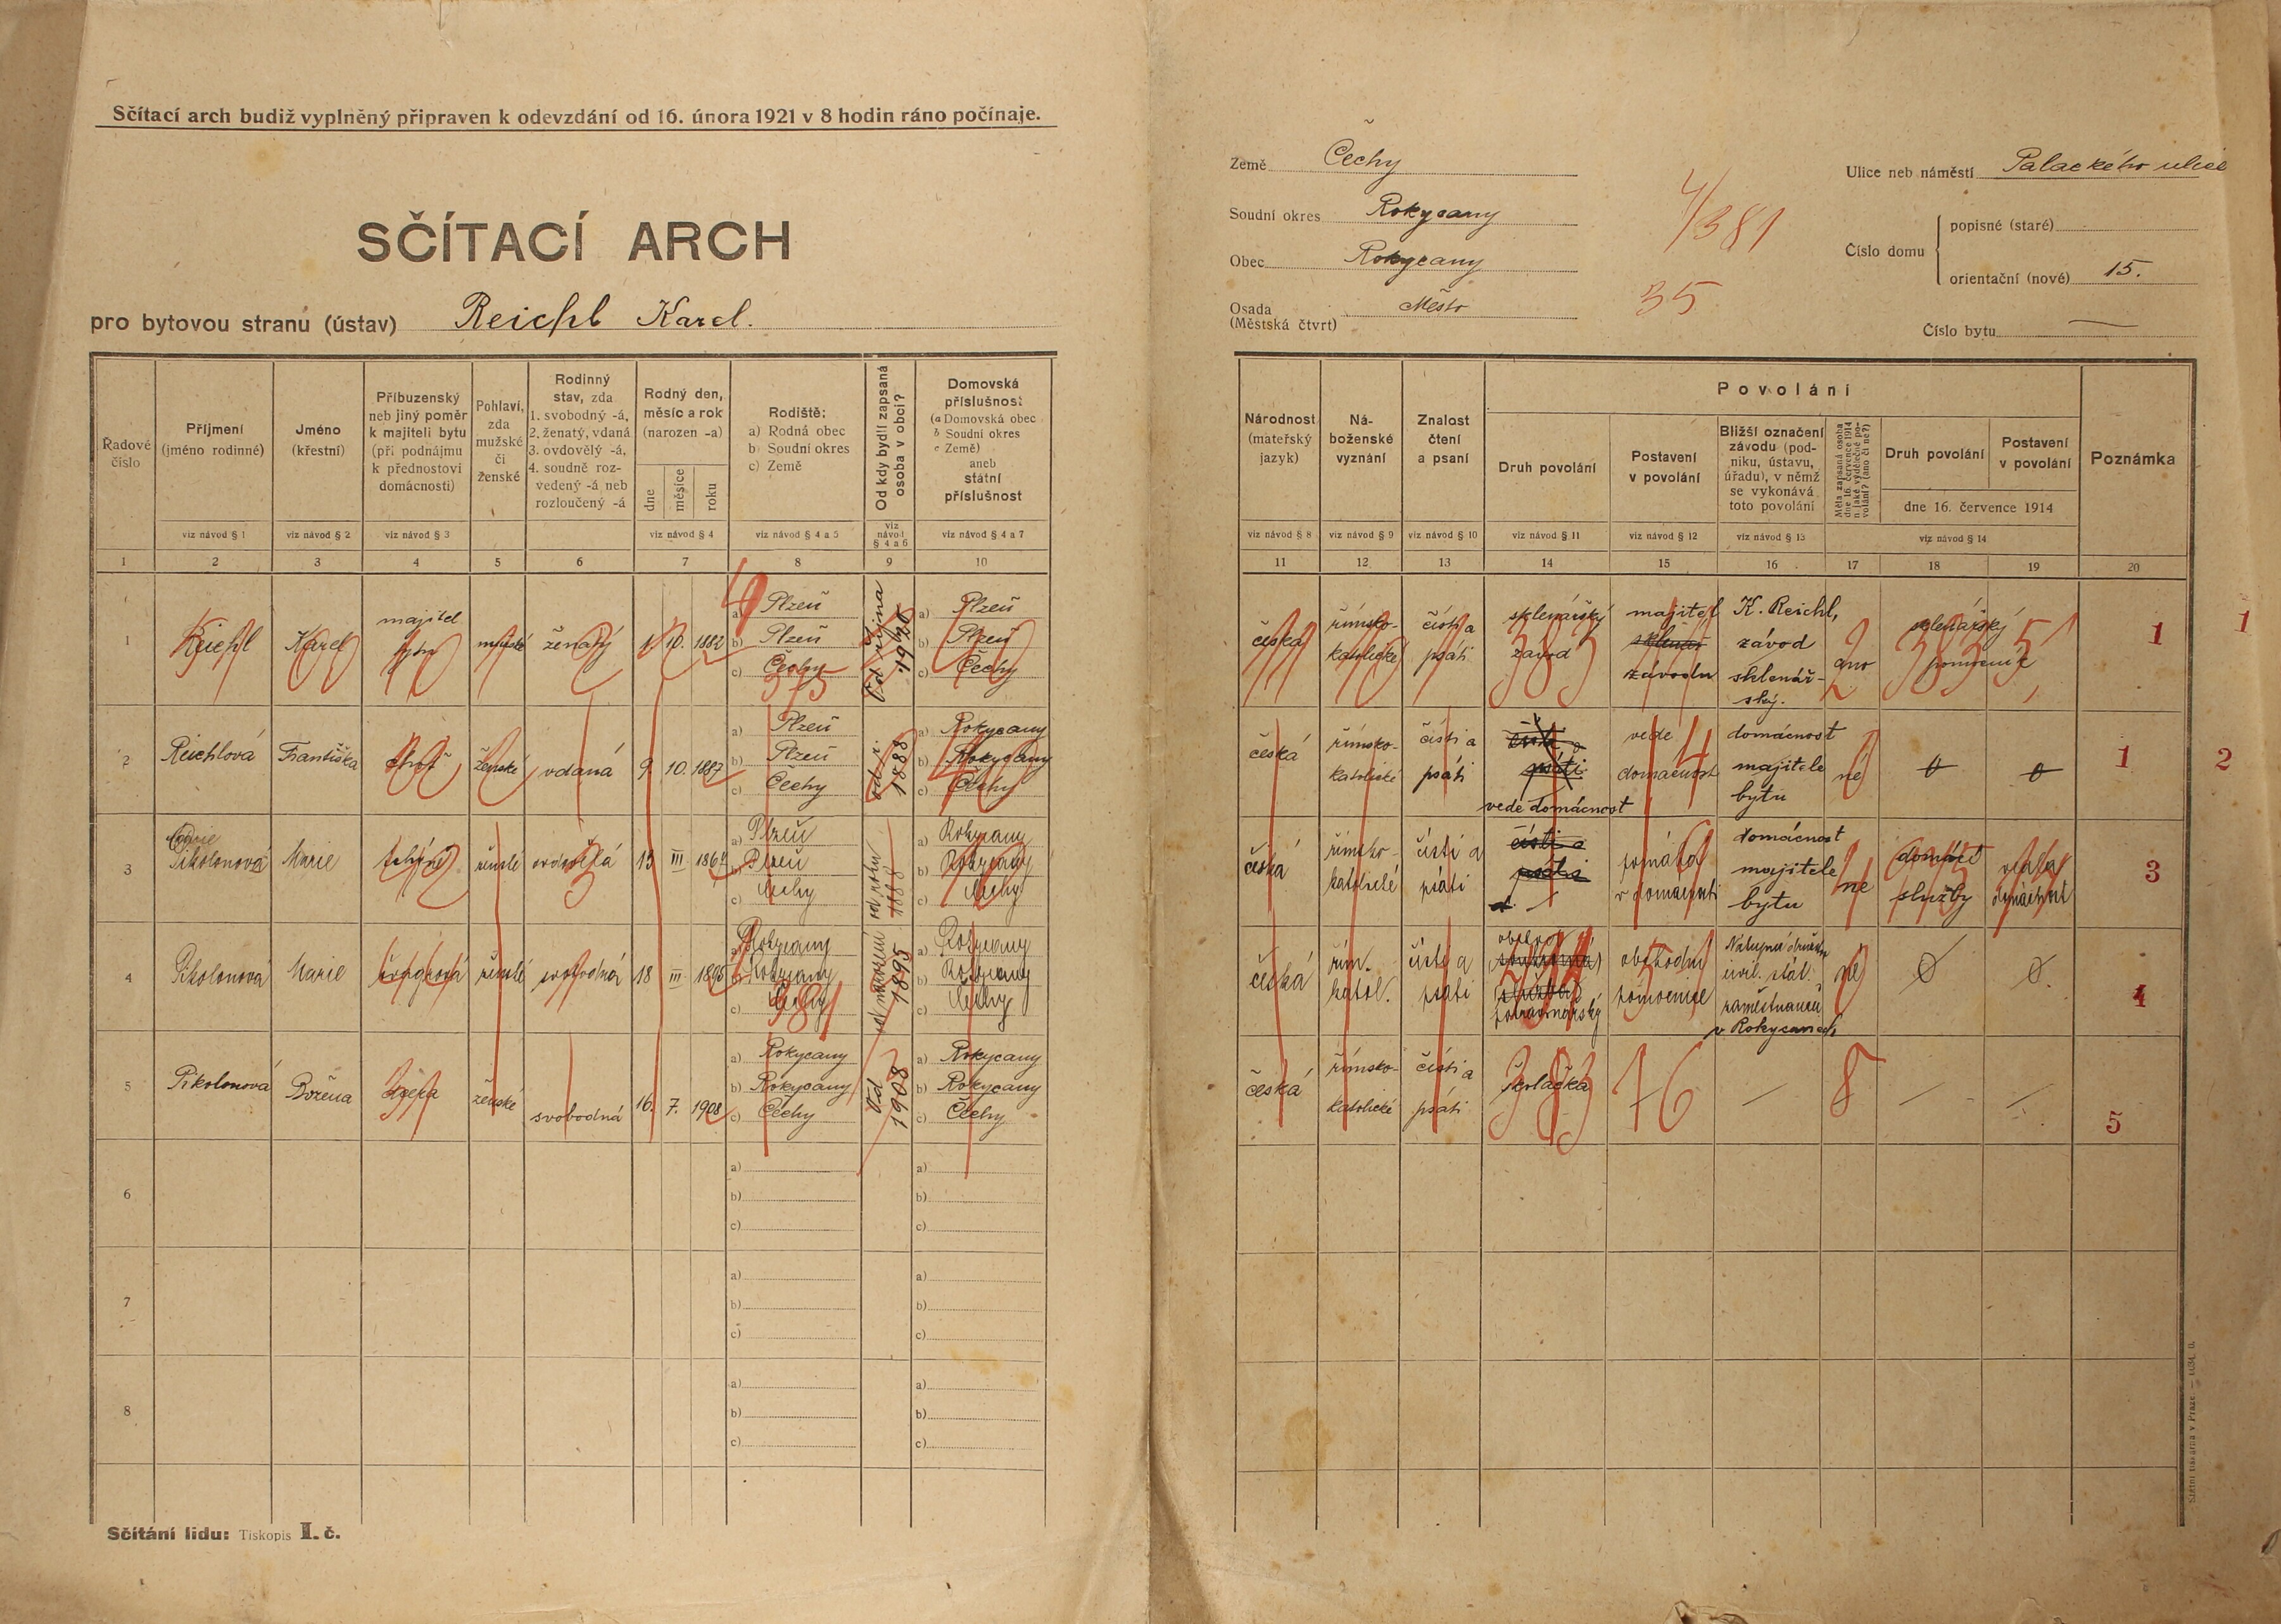 Sčítací arch budiž vyplněný připraven k odevzdání od 16. února 1921 v 8 hodin ráno počínaje.
SČÍTACÍ ARCH
pro bytovou stranu (ústav) Reichl Karel.
Země Čechy
Soudní okres Rokycany
Obec Rokycany
Osada (Městská čtvrt) Město
4/381
35
Ulice neb náměstí Palackého ulice
Číslo domu
popisné (staré)
orientační (nové) 15.
Číslo bytu —
Řadové číslo
Příjmení (jméno rodinné)
Jméno (křestní)
Příbuzenský neb jiný poměr k majiteli bytu (při podnájmu k přednostovi domácnosti)
Pohlaví, zda mužské či ženské
Rodinný stav, zda 1. svobodný -á, 2. ženatý, vdaná 3. ovdovělý -á, 4. soudně rozvedený -á neb rozloučený -á
Rodný den, měsíc a rok (narozen -a)
dne měsíce roku
Rodiště: a) Rodná obec b) Soudní okres c) Země
Od kdy bydlí zapsaná osoba v obci?
Domovská příslušnost (a Domovská obec b Soudní okres c Země) aneb státní příslušnost
Národnost (mateřský jazyk)
Náboženské vyznání
Znalost čtení a psaní
Povolání
Druh povolání
Postavení v povolání
Bližší označení závodu (podniku, ústavu, úřadu), v němž se vykonává toto povolání
Měla zapsaná osoba dne 16. července 1914 n. jaké výdělečné povolání? (ano či ne?)
Druh povolání
Postavení v povolání
dne 16. července 1914
Poznámka
viz návod § 1 viz návod § 2 viz návod § 3 viz návod § 4 viz návod § 4 a 5 viz návod § 4 a 6 viz návod § 4 a 7
viz návod § 8 viz návod § 9 viz návod § 10 viz návod § 11 viz návod § 12 viz návod § 13 viz návod § 14
1 2 3 4 5 6 7 8 9 10
11 12 13 14 15 16 17 18 19 20
1 Reichl Karel majitel bytu mužské ženatý 10. 1882 a) Plzeň b) Plzeň c) Čechy Od října 1920 a) Plzeň b) Plzeň c) Čechy
česká římsko-katolické čísti a psáti sklenářský závod majitel sklenář závodu K. Reichl, závod sklenářský. ano sklenářský pomocník 1 1
2 Reichlová Františka choť ženské vdaná 9. 10. 1887 a) Plzeň b) Plzeň c) Čechy od r. 1888 a) Rokycany b) Rokycany c) Čechy
česká římsko-katolické čísti a psáti čísti a psáti vede domácnost vede domácnost domácnost majitele bytu ne 0 0 1 2
3 Pikolonová Marie tchýně ženské ovdovělá 15 III a) Plzeň b) Plzeň c) Čechy od roku 1888 a) Rokycany b) Rokycany c) Čechy
česká římsko-katolické čísti a psáti čísti a psáti pomáhá v domácnosti domácnost majitele bytu ne domácí služby vedla domácnost 3
4 Pikolonová Marie švagrová ženské svobodná 18 III 1895 a) Rokycany b) Rokycany c) Čechy od narození 1895 a) Rokycany b) Rokycany c) Čechy
česká řím. katol. čísti a psáti obchod potravinářský obchodní pomocnice civil. stát. zaměstnanců v Rokycanech ne 0 0. 4
5 Pikolonová Božena ženské svobodná 16. 7. 1908 a) Rokycany b) Rokycany c) Čechy Od 1908 a) Rokycany b) Rokycany c) Čechy
česká římsko-katolické čísti a psáti 383 76 — 8 — — 5
6 a) b) c) a) b) c)
7 a) b) c) a) b) c)
8 a) b) c) a) b) c)
Sčítání lidu: Tiskopis I. č.